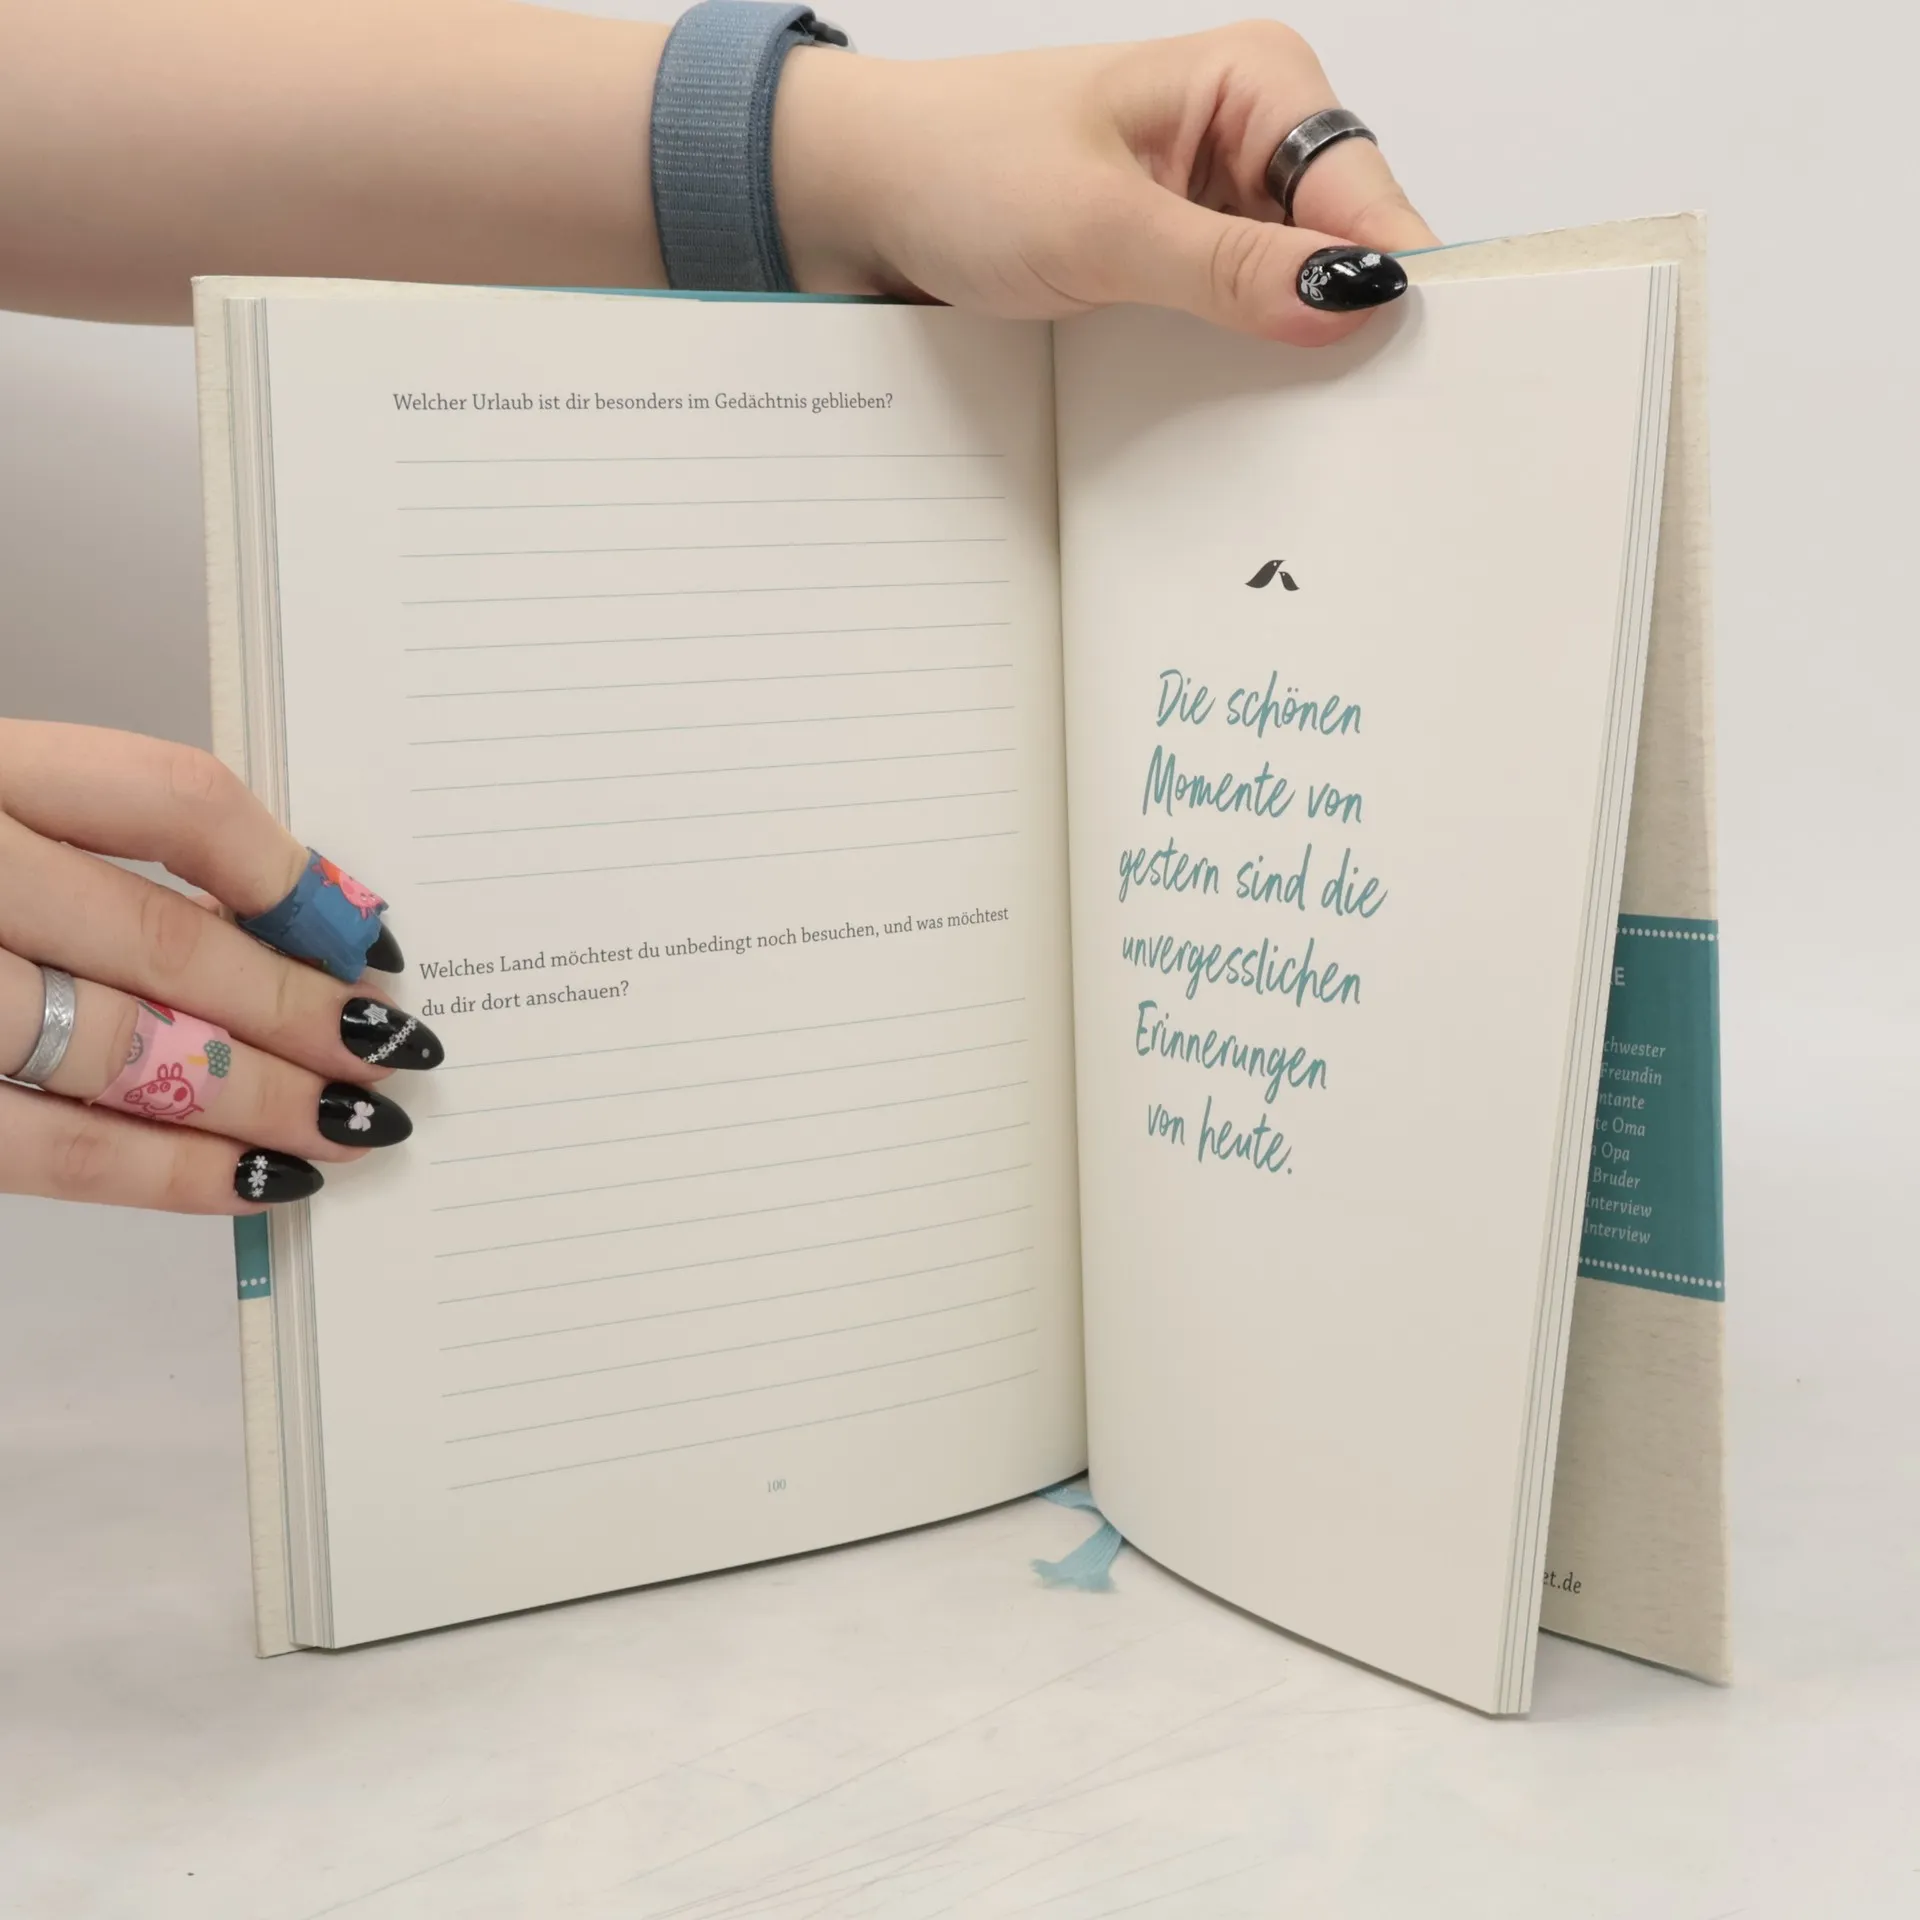 Welcher Urlaub ist dir besonders im Gedächtnis geblieben?
Welches Land möchtest du unbedingt noch besuchen, und was möchtest
du dir dort anschauen?
100
Die schönen
Momente von
gestern sind die
unvergesslichen
Erinnerungen
von heute.
Oma
Opa
Bruder
Interview
Interview